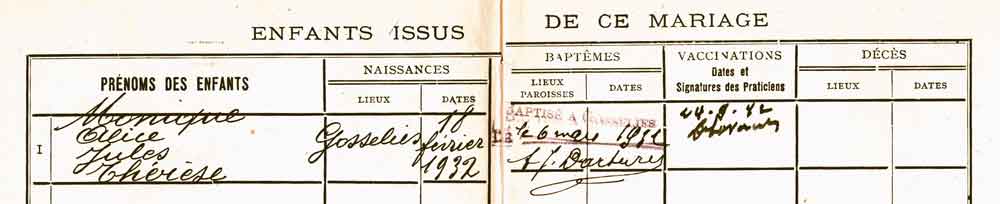 ENFANTS ISSUS DE CE MARIAGE
PRÉNOMS DES ENFANTS
NAISSANCES
LIEUX
DATES
BAPTÊMES
LIEUX
PAROISSES
DATES
VACCINATIONS
Dates et
Signatures des Praticiens
DÉCÈS
LIEUX
DATES
I
Monique
Alice
Jules
Thérèse
Gosselies
18
février
1932
BAPTISÉ A GOSSELIES
le 6 mars 1932